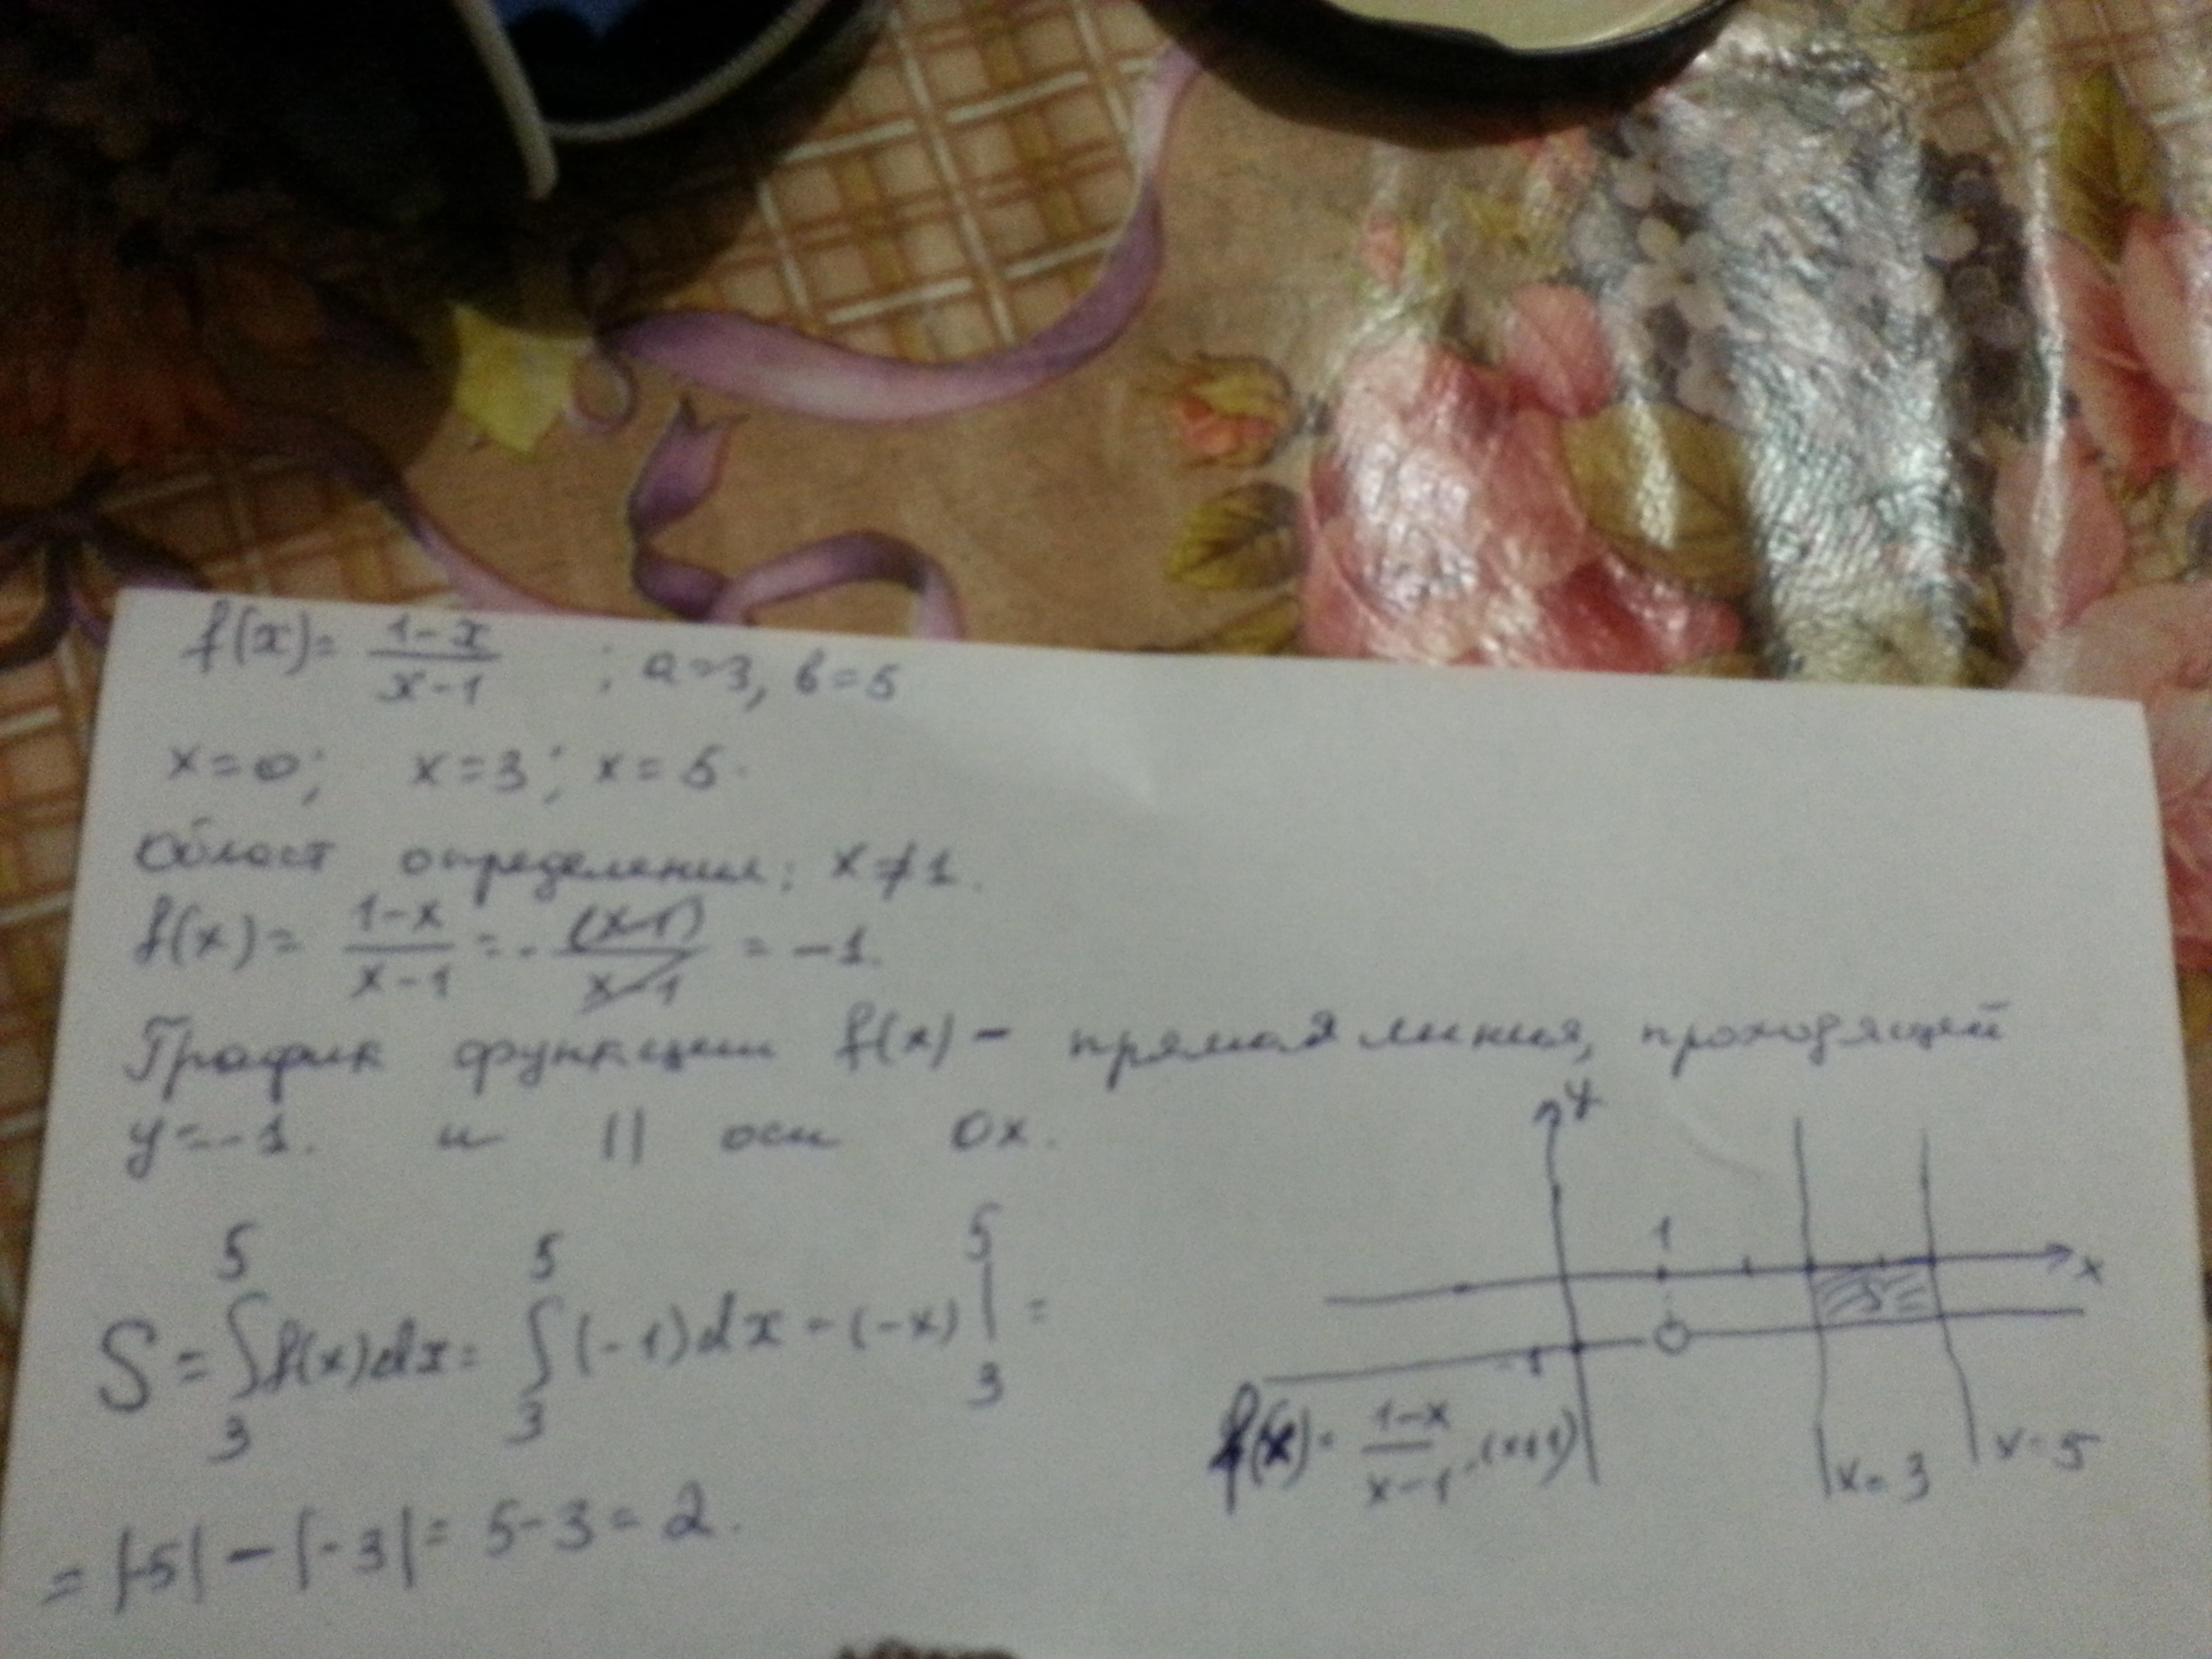 f(x) = (1-x)/(x-1) ; a=3, b=5
x=0; x=3; x=5.
Област определения: x≠1.
f(x) = (1-x)/(x-1) = -(x-1)/(x-1) = -1.
График функции f(x) - прямая линия, проходящей
y=-1. и || оси Ox.
S = ∫₃⁵ f(x)dx = ∫₃⁵ (-1)dx = (-x)|₃⁵ =
= |-5| - |-3| = 5-3 = 2.
y
1
x
S
-1
f(x) = (1-x)/(x-1)
x=3
x=5